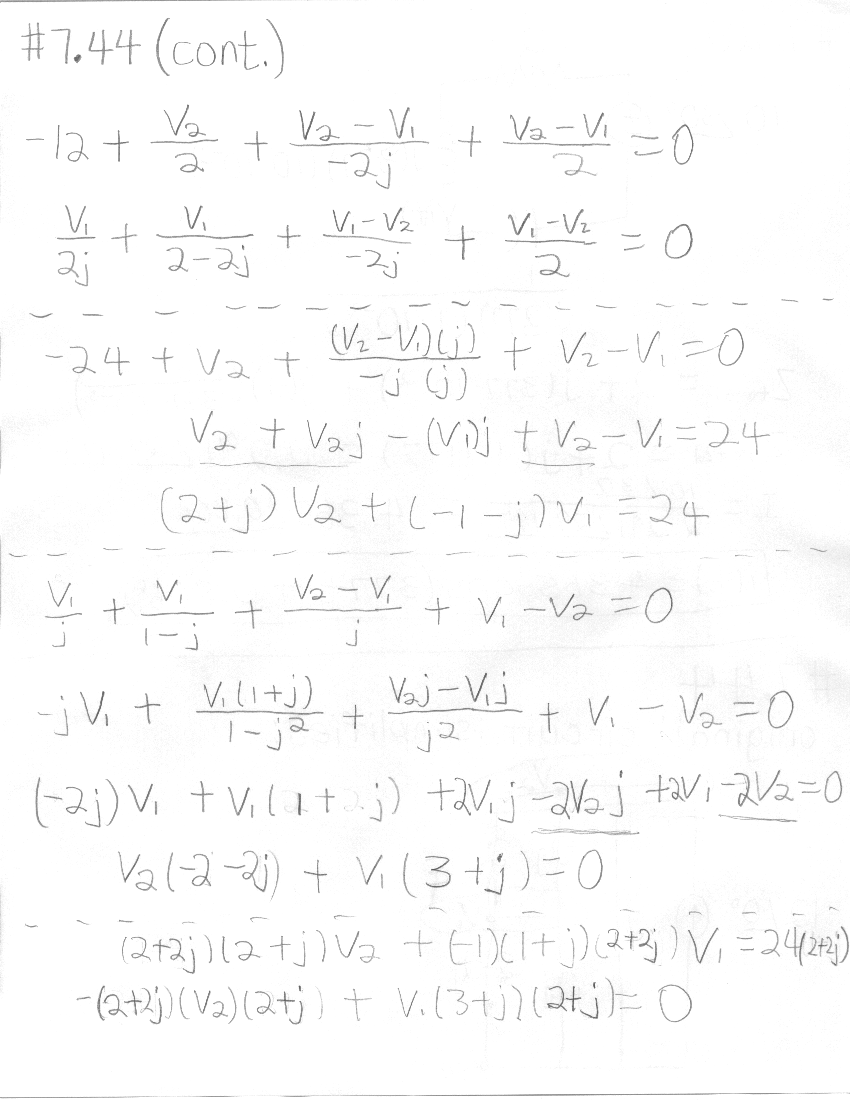 #7.44 (cont.)
-12 + V2/2 + (V2 - V1)/(-2j) + (V2 - V1)/2 = 0
V1/2j + V1/(2-2j) + (V1-V2)/(-2j) + (V1-V2)/2 = 0
-24 + V2 + (V2-V1)(j)/(-j (j)) + V2 - V1 = 0
V2 + V2j - (V1)j + V2 - V1 = 24
(2+j) V2 + (-1-j) V1 = 24
V1/j + V1/(1-j) + (V2 - V1)/j + V1 - V2 = 0
-jV1 + V1(1+j)/(1-j²) + (V2j - V1j)/j² + V1 - V2 = 0
(-2j)V1 + V1(1+j) + 2V1j - 2V2j + 2V1 - 2V2 = 0
V2(-2-2j) + V1(3+j) = 0
(2+2j)(2+j)V2 + (-1)(1+j)(2+2j)V1 = 24(2+2j)
-(2+2j)(V2)(2+j) + V1(3+j)(2+j) = 0